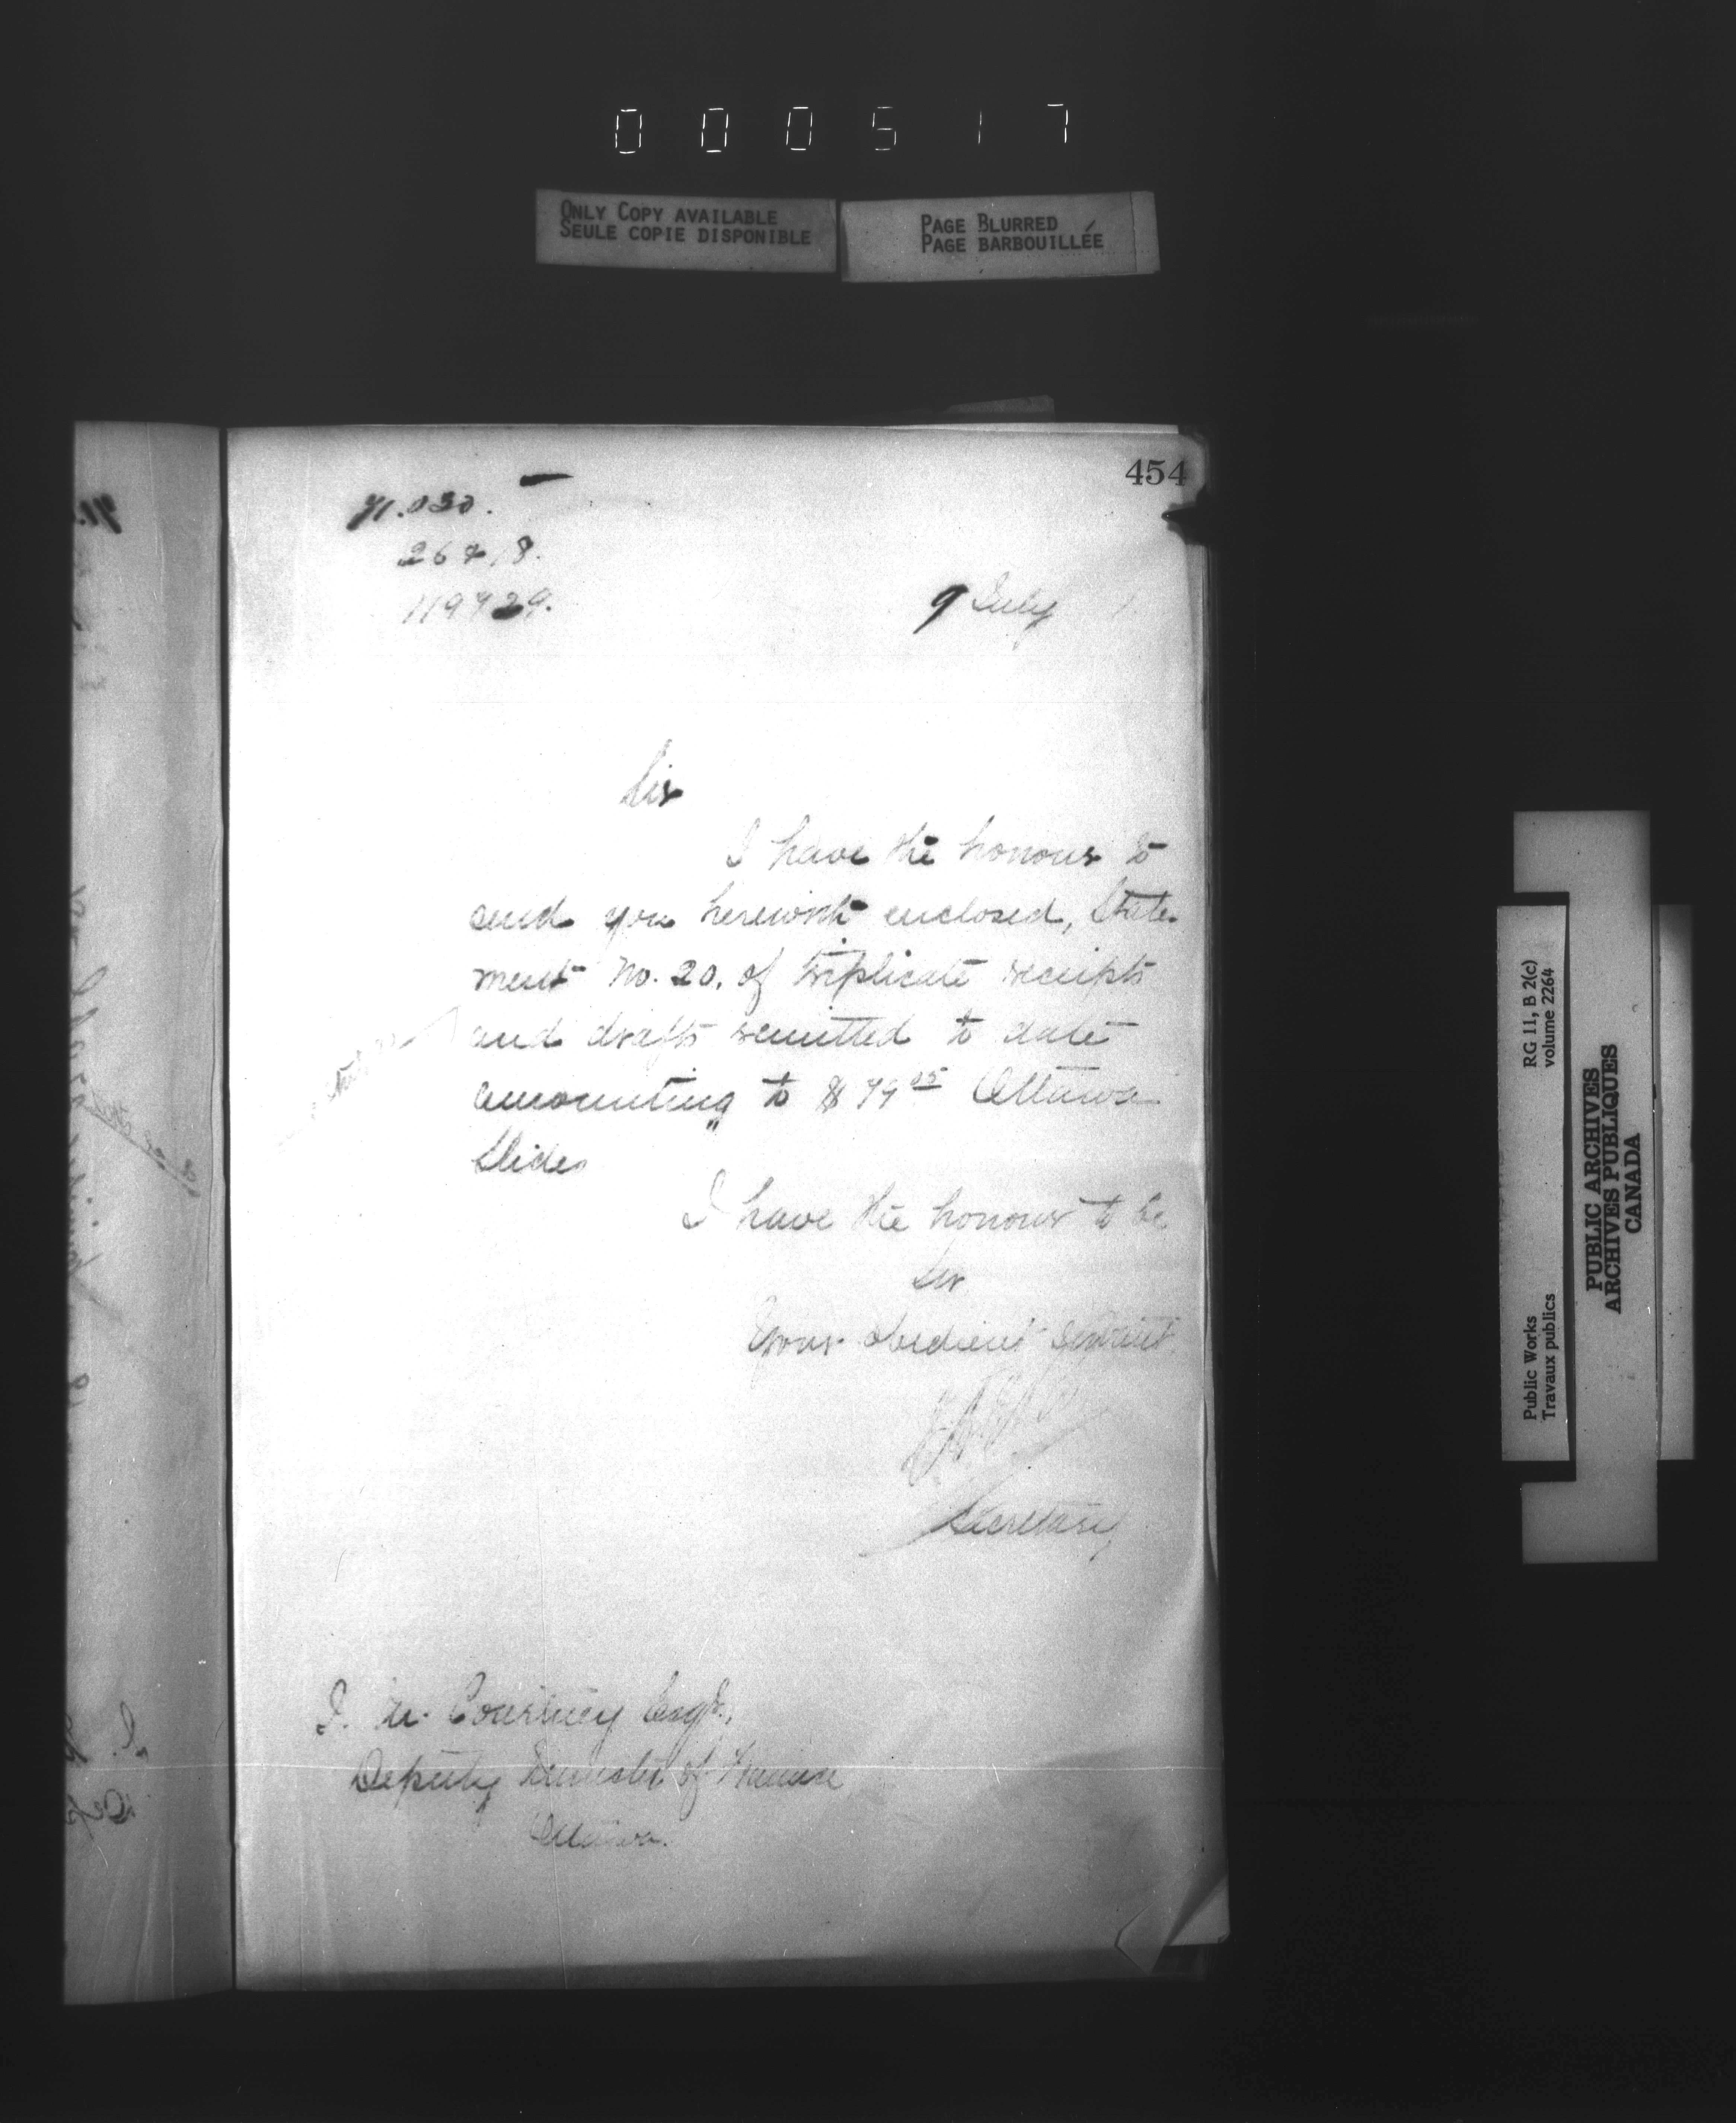 000517
ONLY COPY AVAILABLE
SEULE COPIE DISPONIBLE
PAGE BLURRED
PAGE BARBOUILLÉE
454
71.030.
26718.
119729.
9 July
Sir
I have the honour to
send you herewith enclosed, State-
ment No. 20. of triplicate receipts
and drafts remitted to date
amounting to $ 79 05 Ottawa
Slides
I have the honour to be
Sir
Your obedient servant
Secretary
J. M. Courtney Esqr.,
Deputy Minister of Finance
Ottawa.
RG 11, B 2(c)
volume 2264
Public Works
Travaux publics
PUBLIC ARCHIVES
ARCHIVES PUBLIQUES
CANADA